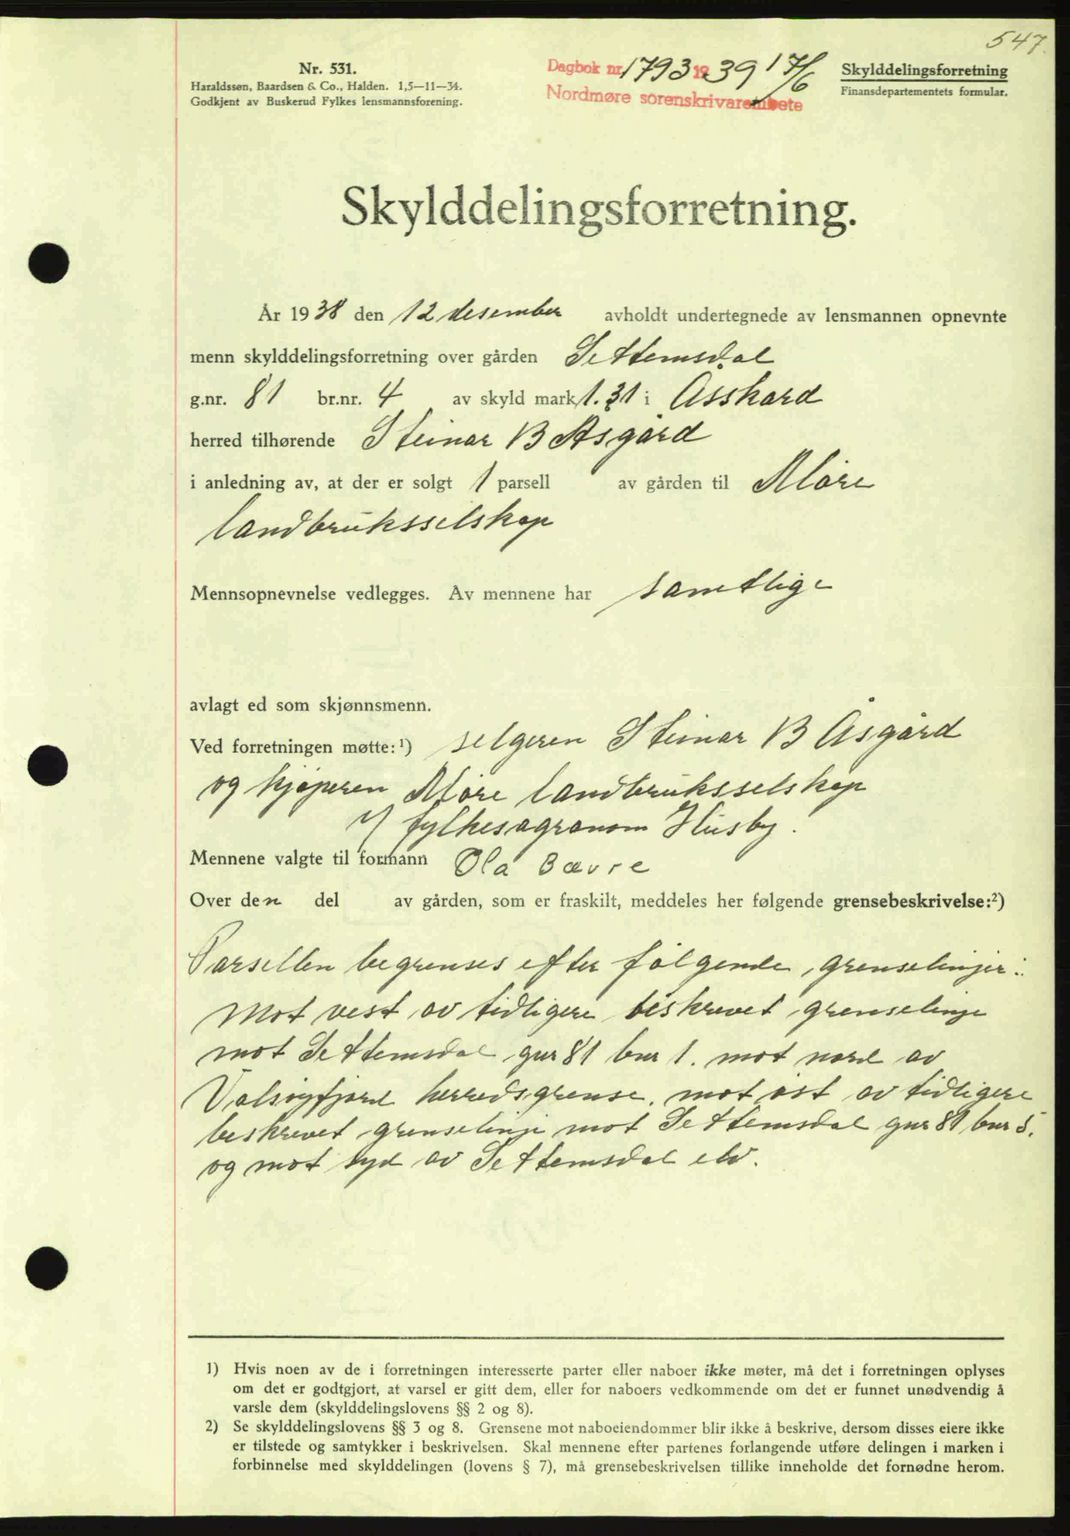 547.
Nr. 531.
Haraldssøn, Baardsen & Co., Halden. 1,5—11—34.
Godkjent av Buskerud Fylkes lensmannsforening.
Dagbok nr. 1793 1939 17/6
Nordmøre sorenskrivarembete
Skylddelingsforretning
Finansdepartementets formular.
Skylddelingsforretning.
År 1938 den 12 desember avholdt undertegnede av lensmannen opnevnte
menn skylddelingsforretning over gården Settemsdal
g.nr. 81 br.nr. 4 av skyld mark 1.31 i Åsskard
herred tilhørende Steinar B Åsgård
i anledning av, at der er solgt 1 parsell av gården til Møre
landbruksselskap
Mennsopnevnelse vedlegges. Av mennene har samtlige
avlagt ed som skjønnsmenn.
Ved forretningen møtte:¹) selgeren Steinar B Åsgård
og kjøperen Møre landbruksselskap
v/ fylkesagronom Husby.
Mennene valgte til formann Ola Bævre
Over den del av gården, som er fraskilt, meddeles her følgende grensebeskrivelse:²)
Parsellen begrenses efter følgende grenselinjer:
Mot vest av tidligere beskrevet grenselinje
mot Settemsdal gnr 81 bnr 1. mot nord av
Valsøyfjord herredsgrense. mot øst av tidligere
beskrevet grenselinje mot Settemsdal gnr 81 bnr 5.
og mot syd av Settemsdal elv.
1) Hvis noen av de i forretningen interesserte parter eller naboer ikke møter, må det i forretningen oplyses
om det er godtgjort, at varsel er gitt dem, eller for naboers vedkommende om det er funnet unødvendig å
varsle dem (skylddelingslovens §§ 2 og 8).
2) Se skylddelingslovens §§ 3 og 8. Grensene mot naboeiendommer blir ikke å beskrive, dersom disses eiere ikke
er tilstede og samtykker i beskrivelsen. Skal mennene efter partenes forlangende utføre delingen i marken i
forbinnelse med skylddelingen (lovens § 7), må grensebeskrivelsen tillike inneholde det fornødne herom.